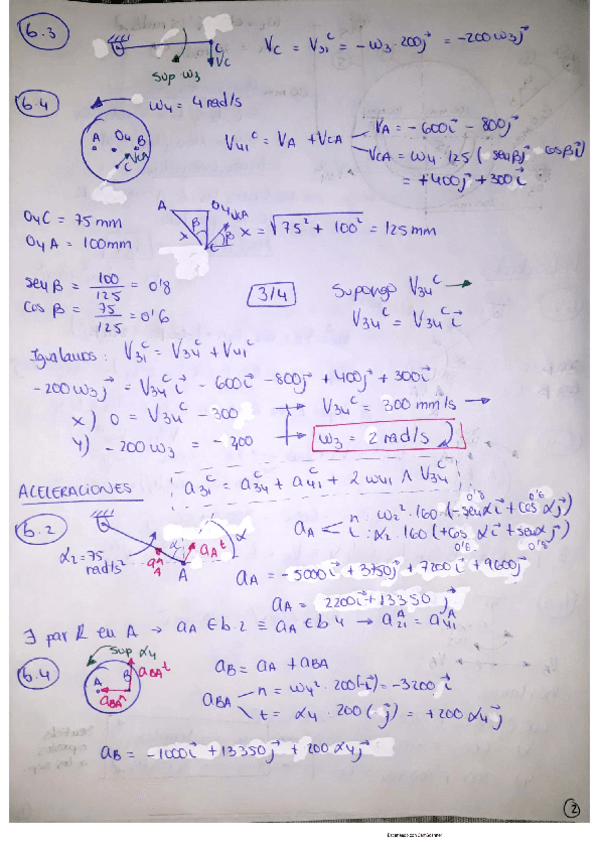 b.3
C
Vc
sup ω3
Vc = V31^c = -ω3·200j = -200ω3j
b.4
ω4 = 4 rad/s
A O4 B
C VCA
V41^c = VA + VCA
VA = -600i - 800j
VCA = ω4·125 (senβj cosβi)
= +400j + 300i
O4C = 75 mm
O4A = 100 mm
A O4 VCA
β
x
C
x = √(75² + 100²) = 125 mm
sen β = 100/125 = 0'8
cos β = 75/125 = 0'6
3/4
Supongo V34^c →
V34^c = V34^c i
Igualamos: V31^c = V34^c + V41^c
-200ω3j = V34^c i - 600i - 800j + 400j + 300i
x) 0 = V34^c - 300
V34^c = 300 mm/s →
y) -200ω3 =
ω3 = 2 rad/s
ACELERACIONES
a31^c = a34^c + a41^c + 2ω41 ∧ V34^c
b.2
α2 = 75 rad/s²
α
aA^n
aA^t
A
aA
n: ω2²·160·(-senαi + cosαj)
0'8 0'6
t: α2·160 (+cosαi + senαj)
0'6 0'8
aA = -5000i + 3750j + 7200i + 9600j
aA = 2200i + 13350j
∃ par R en A → aA ∈ b.2 ≡ aA ∈ b.4 → a21^A = a41^A
b.4
sup α4
A B
aBA^t
aBA^n
aB = aA + aBA
aBA
n = ω4²·200(-i) = -3200i
t = α4·200(j) = +200α4j
aB = -1000i + 13350j + 200α4j
2
Escaneado con CamScanner